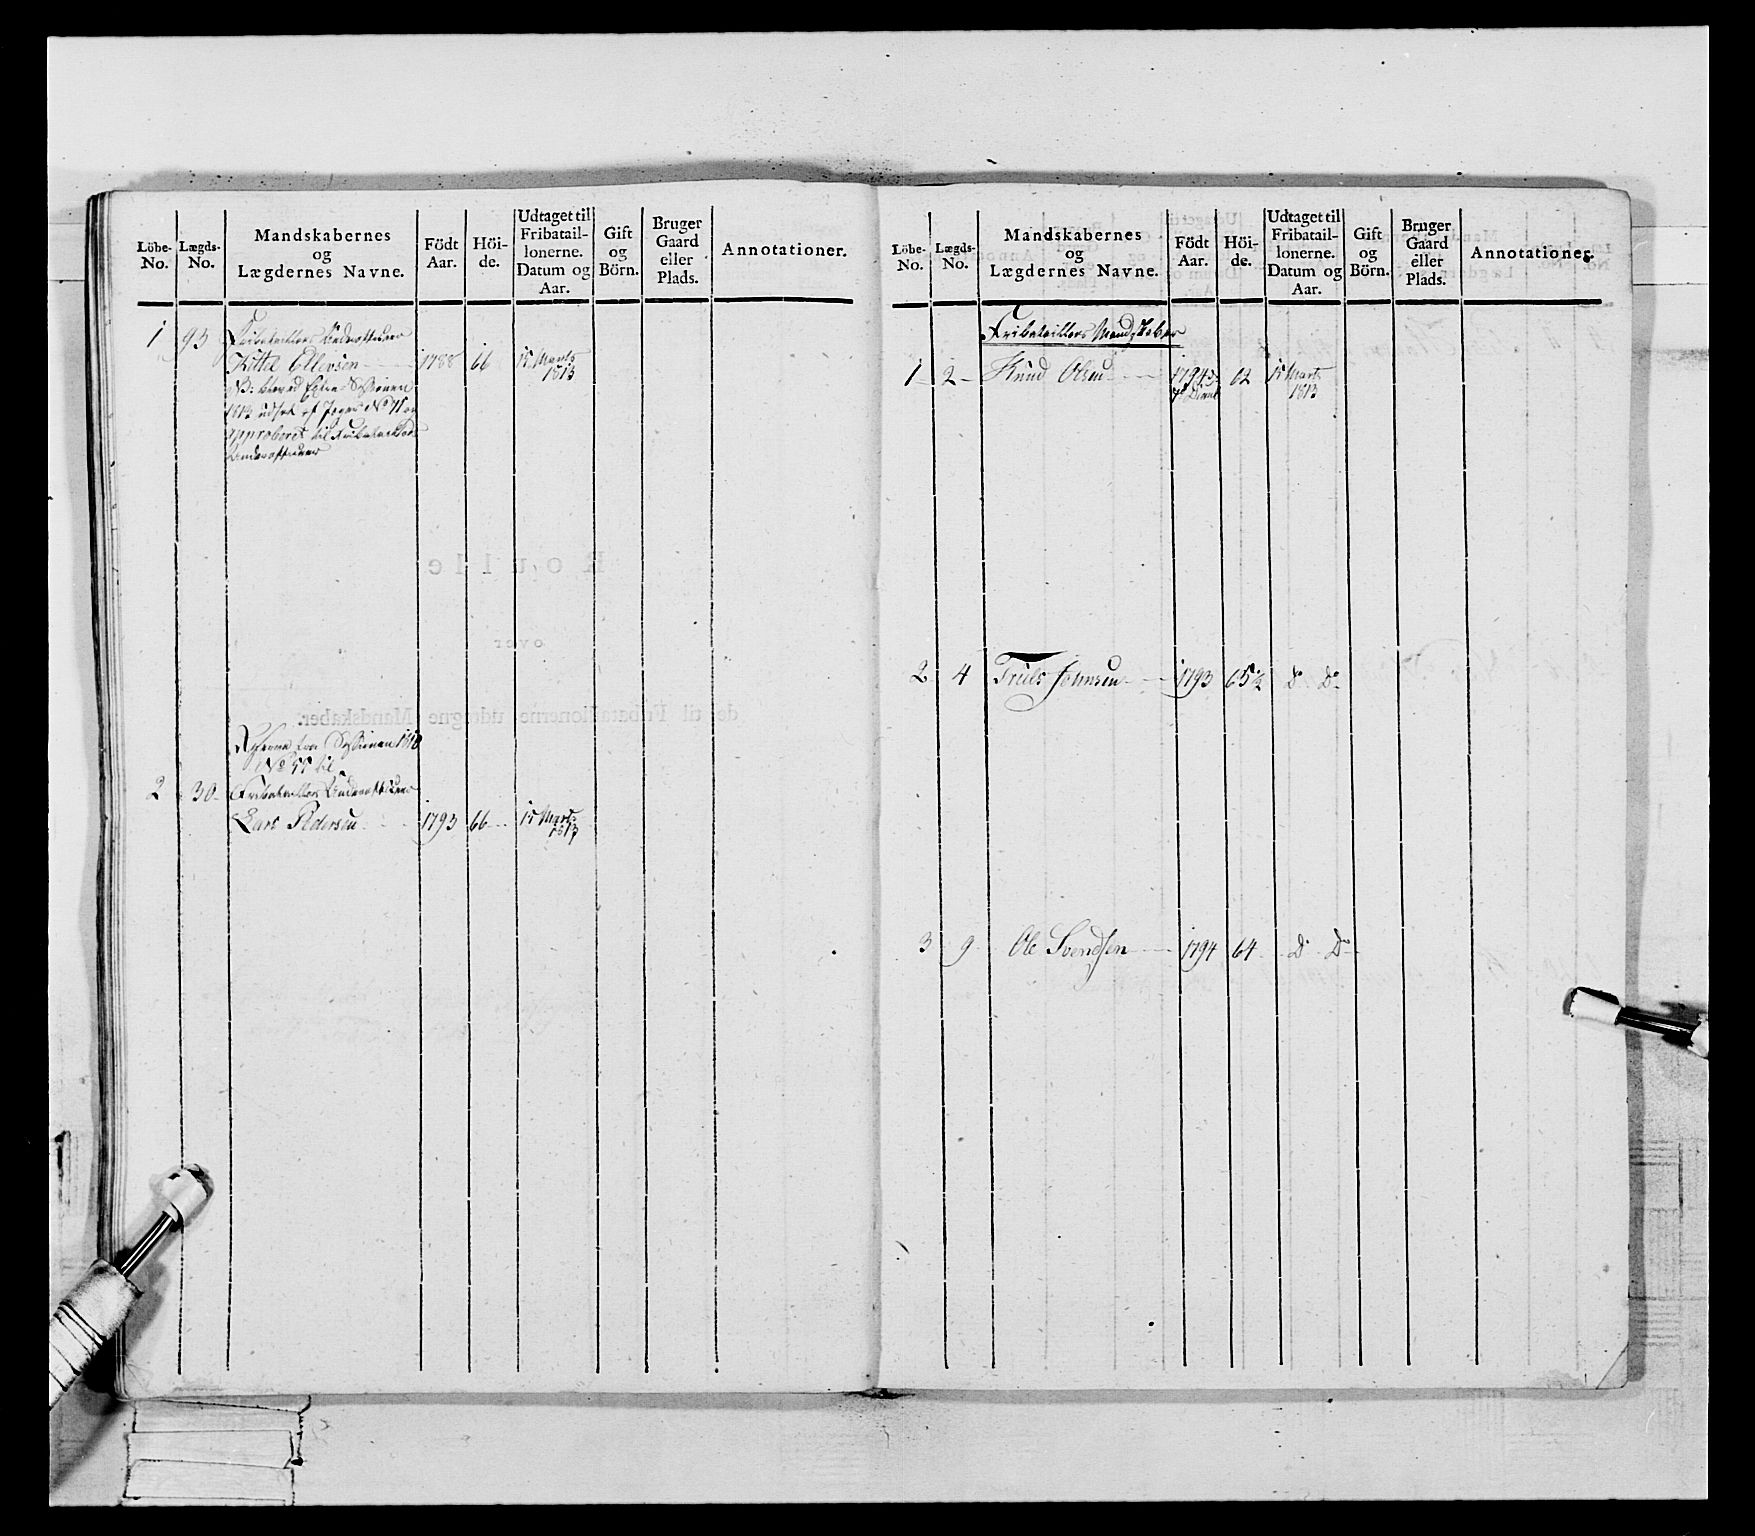 Löbe-No.
Lægds-No.
Mandskabernes og Lægdernes Navne.
Födt Aar.
Höi-de.
Udtaget til Fribatail-lonerne. Datum og Aar.
Gift og Börn.
Bruger Gaard eller Plads.
Annotationer.
1 93 Underofficeer
Kittel Ellevsen 1788 66 15 Marts 1813
approberet til
Underofficeer
Sessionen 1810
No 55 til
2 30 Underofficeer
Lars Pedersen 1793 66 15 Marts 1813
Löbe-No.
Lægds-No.
Mandskabernes og Lægdernes Navne.
Födt Aar.
Höi-de.
Udtaget til Fribatail-lonerne. Datum og Aar.
Gift og Börn.
Bruger Gaard eller Plads.
Annotationer.
Mandskaber
1 2 Knud Olsen 62 15 Marts 1813
2 4 Truls Johnsen 1793 65½ do do
3 9 Ole Svendsen 1794 64 do do
Roulle
over
de til Fribataillonerne udtagne Mandskaber.